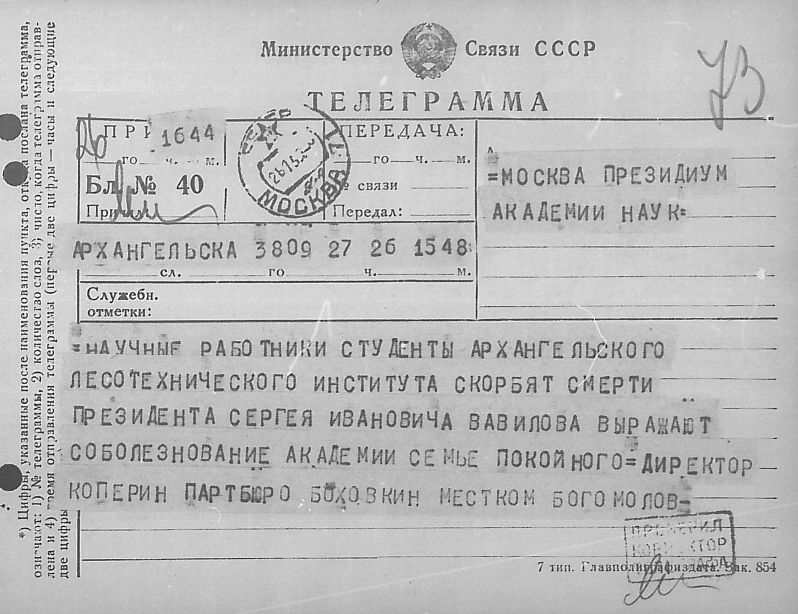 Министерство Связи СССР
73
ТЕЛЕГРАММА
ПРИ 1644
го ч. м.
26
Бл. № 40
МОСКВА
ПЕРЕДАЧА:
го ч. м.
№ связи
Передал:
=МОСКВА ПРЕЗИДИУМ
АКАДЕМИИ НАУК=
АРХАНГЕЛЬСКА 3809 27 26 1548
сл. го ч. м.
Служебн.
отметки:
=НАУЧНЫЕ РАБОТНИКИ СТУДЕНТЫ АРХАНГЕЛЬСКОГО
ЛЕСОТЕХНИЧЕСКОГО ИНСТИТУТА СКОРБЯТ СМЕРТИ
ПРЕЗИДЕНТА СЕРГЕЯ ИВАНОВИЧА ВАВИЛОВА ВЫРАЖАЮТ
СОБОЛЕЗНОВАНИЕ АКАДЕМИИ СЕМЬЕ ПОКОЙНОГО=ДИРЕКТОР
КОПЕРИН ПАРТБЮРО БОХОВКИН МЕСТКОМ БОГОМОЛОВ-
ПРОВЕРИЛ
7 тип. Главполиграфиздата. Зак. 854
*) Цифры, указанные после наименования пункта, откуда послана телеграмма,
означают: 1) № телеграммы, 2) количество слов, 3) число, когда телеграмма отправ-
лена и 4) время отправления телеграммы (первые две цифры — часы и следующие
две цифры